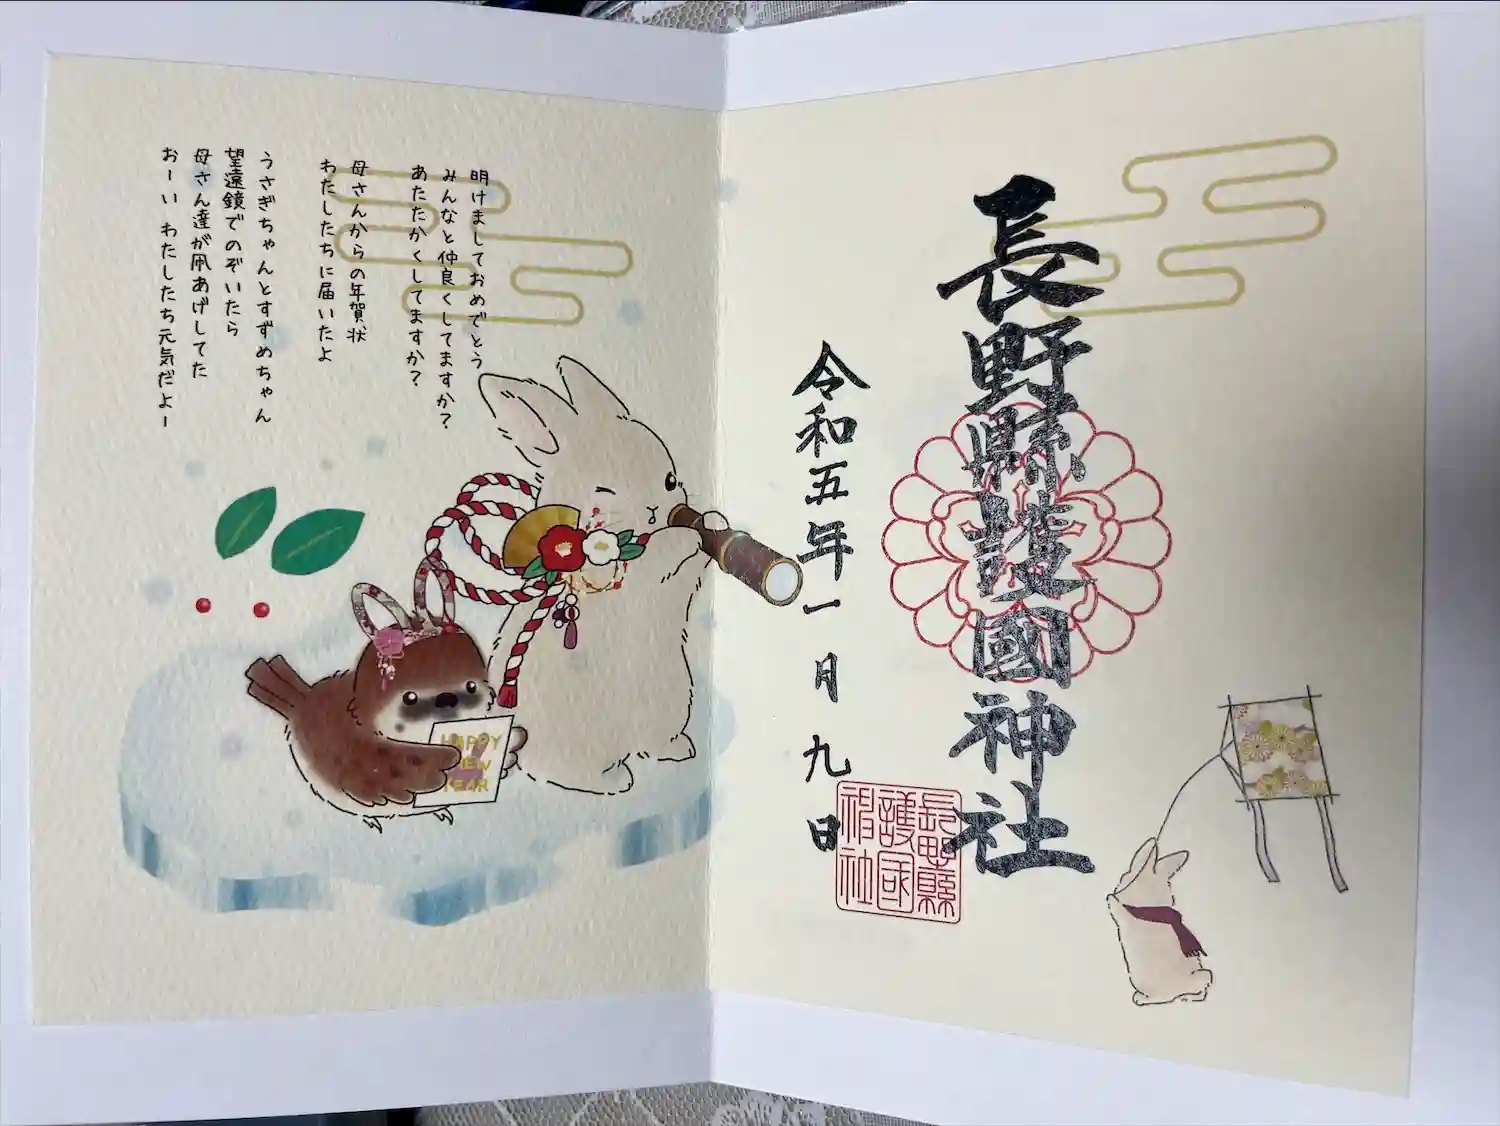 長野縣護國神社
令和五年一月九日
長野縣
護国
神社
明けましておめでとう
みんなと仲良くしてますか？
あたたかくしてますか？
母さんからの年賀状
わたしたちに届いたよ
うさぎちゃんとすずめちゃん
望遠鏡でのぞいたら
母さん達が凧あげしてた
おーい わたしたち元気だよー
HAPPY
NEW
YEAR